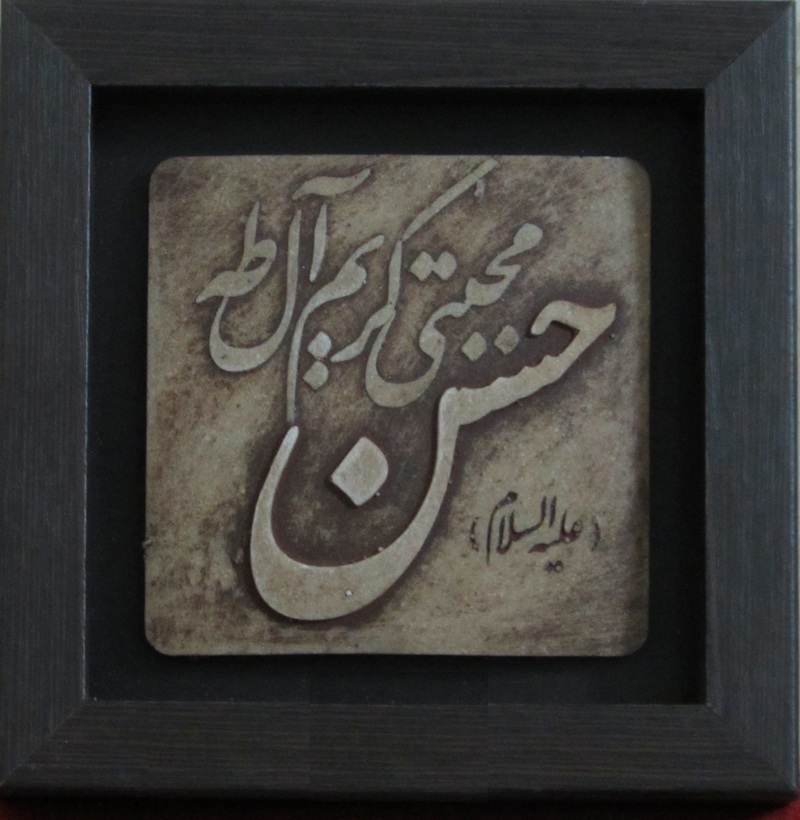 مجتبی کریم آل طه
حسن
(علیه السلام)